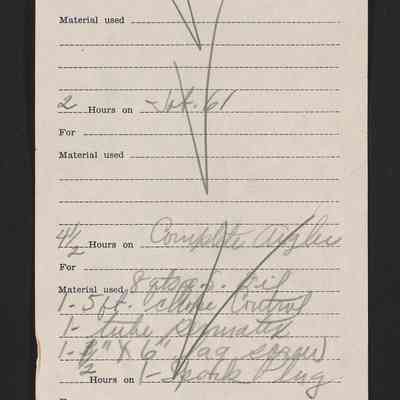 Material used
2 Hours on Int. 61
For
Material used
4½ Hours on Complete
For
Material used 8 qts oil
1 - 5 ft. choke Control
1 - tube Permatex
1 - ½" X 6" lag screw
½ Hours on 1 - Spark Plug